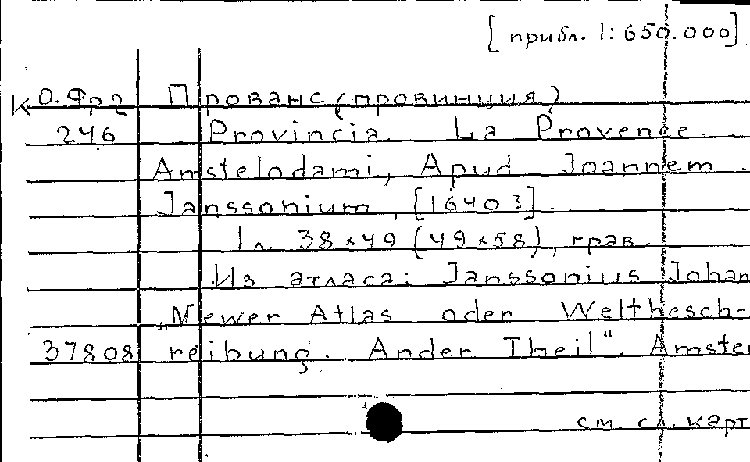 [прибл. 1:650.000]
К О.Фр2 Прованс (провинция)
246 Provincia. La Provence.
Amstelodami, Apud Joannem
Janssonium, [1640?].
1 л. 38×49 (49×58), грав.
Из атласа: Janssonius Johan
„Newer Atlas oder Weltbesch-
37808 reibung. Ander Theil“. Amster
см. сл. карт